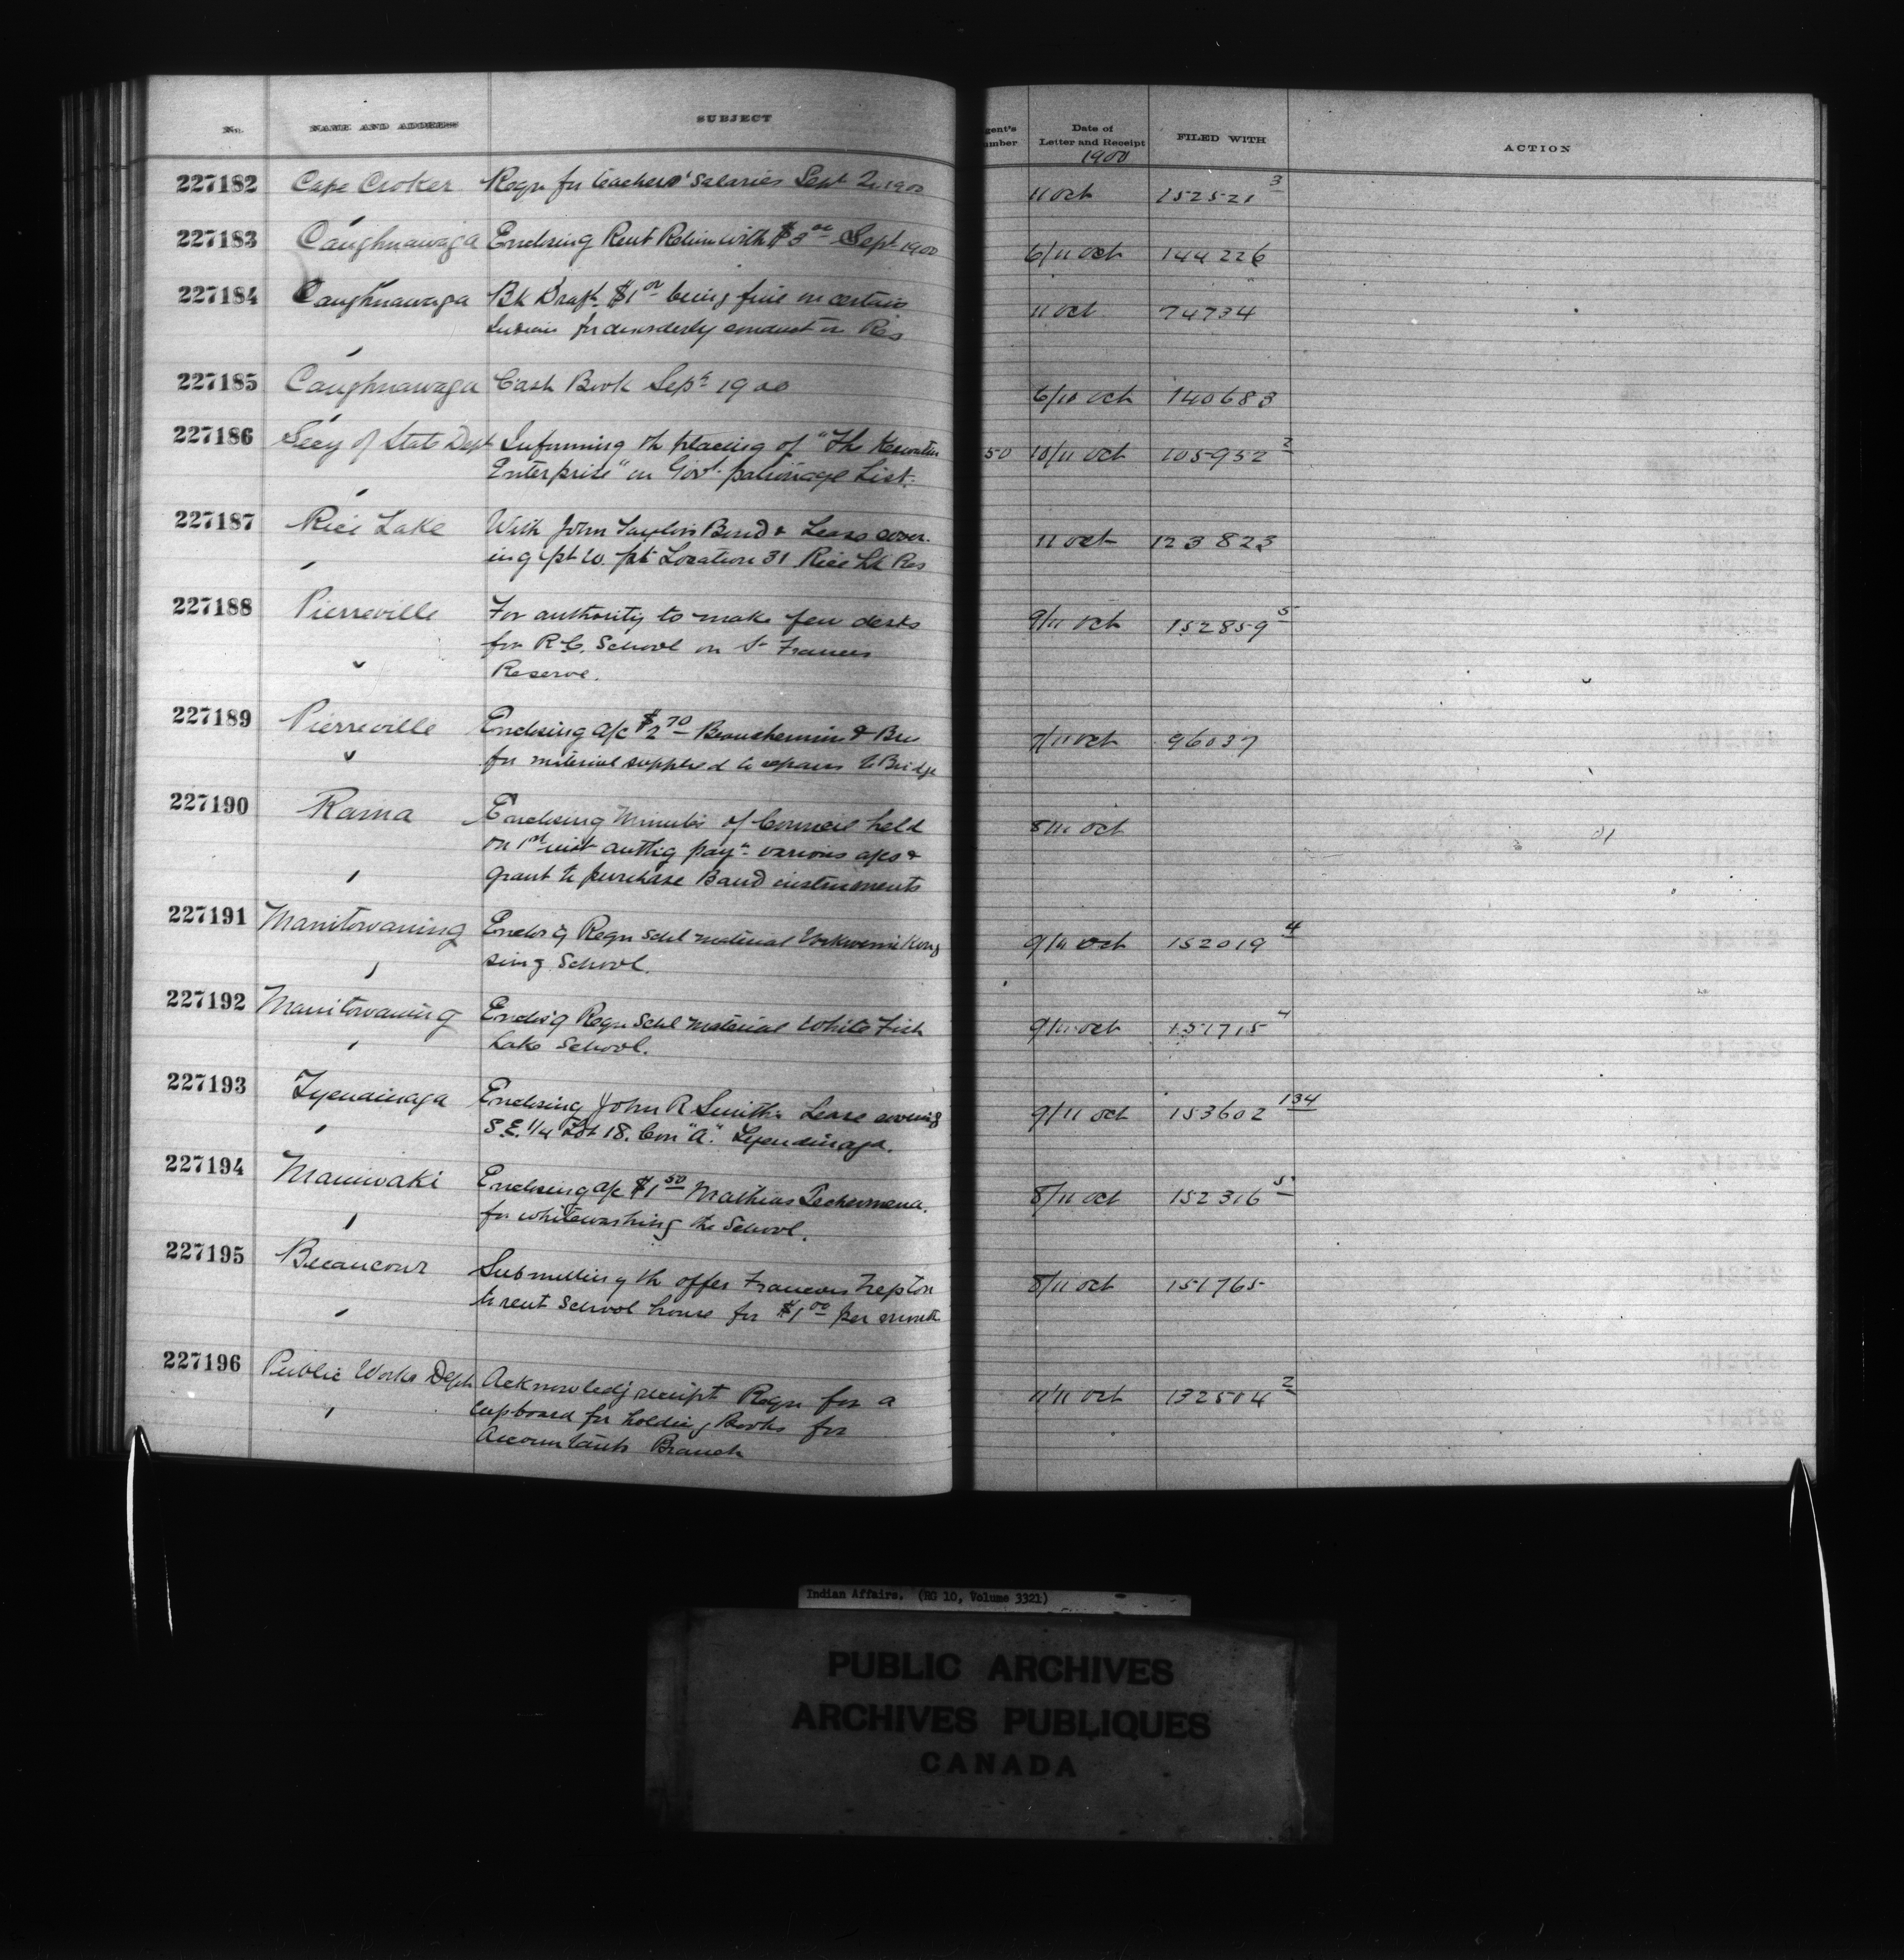 No. NAME AND ADDRESS SUBJECT gent's umber Date of Letter and Receipt FILED WITH ACTION
1900
227182 Cape Croker Reqn for teachers' salaries Sept 1900 11 Oct 152521 3
227183 Caughnawaga Enclosing Rent Return with $3 00 Sept 1900 6/11 Oct 144226
227184 Caughnawaga Bk Draft $1 00 being fine on certain 11 Oct 74734
Indians for disorderly conduct on Res
227185 Caughnawaga Cash Book Sept 1900 6/10 Oct 140683
227186 Secy of State Dept Informing th placing of "The Keewatin 50 10/11 Oct 105952 2
Enterprise" on Govt. patronage List.
227187 Rice Lake With John Taylors Bond & Lease cover- 11 Oct 123823
ing pt W. pt Location 31 Rice Lk Res
227188 Pierreville For authority to make few desks 9/11 Oct 152859 5
for R.C. School on St Francis
Reserve.
227189 Pierreville Enclosing a/c $2 70 Beauchemin & Bro 7/11 Oct 96037
for material supplied to repairs to Bridge
227190 Rama Enclosing Minutes of Council held 8/11 Oct
on 1st inst authg payt various a/cs &
grant to purchase Band instruments
227191 Manitowaning Enclos'g Reqn Schl material 9/11 Oct 152019 4
sing School.
227192 Manitowaning Enclos'g Reqn Schl material White Fish 9/11 Oct 151715 4
Lake School.
227193 Tyendinaga Enclosing John R Smith's Lease covering 9/11 Oct 153602 134
S.E. 1/4 Lot 18. Con "A." Tyendinaga.
227194 Maniwaki Enclosing a/c $1 50 Mathias 8/11 Oct 152316 5
for whitewashing the School.
227195 Becancour Submitting th offer Francois 8/11 Oct 151765
to rent School house for $1 00 per month
227196 Public Works Dept Acknowledg receipt Reqn for a 11/11 Oct 132504 2
cupboard for holding Books for
Accountants Branch
Indian Affairs. (RG 10, Volume 3321)
PUBLIC ARCHIVES
ARCHIVES PUBLIQUES
CANADA